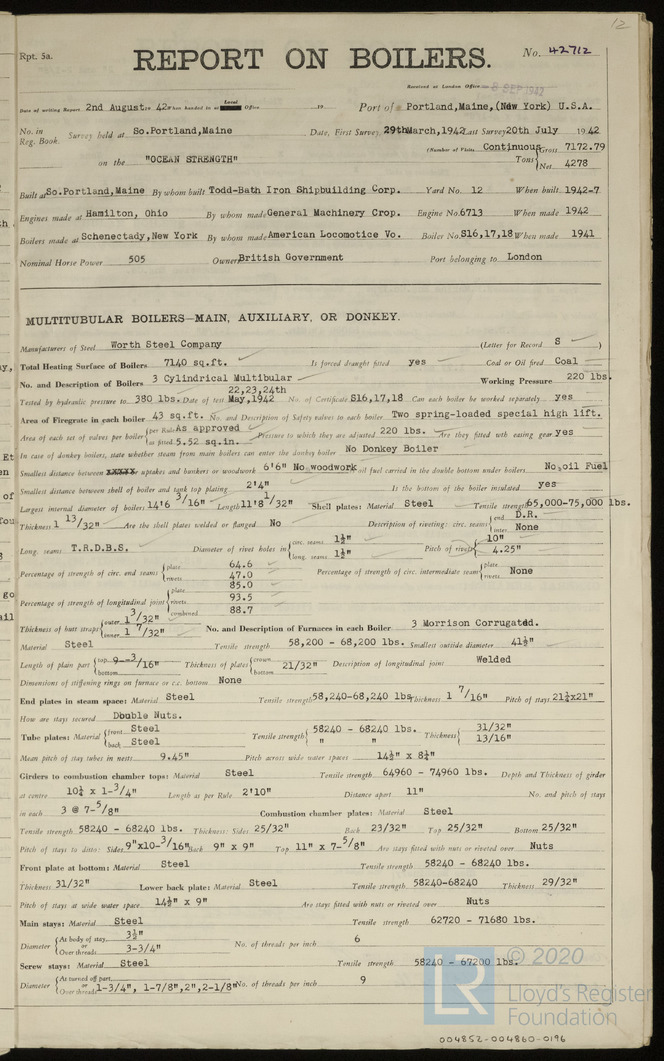 12
Rpt. 5a.
REPORT ON BOILERS.
No. 42712
Received at London Office 8 SEP 1942
Date of writing Report 2nd August 1942 When handed in at Local Office 19 Port of Portland, Maine, (New York) U.S.A.
No. in Reg. Book. Survey held at So.Portland,Maine Date, First Survey 29th March, 1942 Last Survey 20th July 1942
(Number of Visits Continuous
on the "OCEAN STRENGTH" Tons {Gross 7172.79 Net 4278
Built at So.Portland,Maine By whom built Todd-Bath Iron Shipbuilding Corp. Yard No. 12 When built 1942-7
Engines made at Hamilton, Ohio By whom made General Machinery Crop. Engine No. 6713 When made 1942
Boilers made at Schenectady,New York By whom made American Locomotice Vo. Boiler No. S16,17,18 When made 1941
Nominal Horse Power 505 Owner British Government Port belonging to London
MULTITUBULAR BOILERS—MAIN, AUXILIARY, OR DONKEY.
Manufacturers of Steel Worth Steel Company (Letter for Record S )
Total Heating Surface of Boilers 7140 sq.ft. Is forced draught fitted yes Coal or Oil fired Coal
No. and Description of Boilers 3 Cylindrical Multibular Working Pressure 220 lbs.
Tested by hydraulic pressure to 380 lbs. Date of test 22,23,24th May,1942 No. of Certificate S16,17,18 Can each boiler be worked separately yes
Area of Firegrate in each boiler 43 sq.ft. No. and Description of Safety valves to each boiler Two spring-loaded special high lift.
Area of each set of valves per boiler {per Rule As approved as fitted 5.52 sq.in. Pressure to which they are adjusted 220 lbs. Are they fitted with easing gear yes
In case of donkey boilers, state whether steam from main boilers can enter the donkey boiler No Donkey Boiler
Smallest distance between xxxxx uptakes and bunkers or woodwork 6'6" No woodwork Is oil fuel carried in the double bottom under boilers No oil Fuel
Smallest distance between shell of boiler and tank top plating 2'4" Is the bottom of the boiler insulated yes
Largest internal diameter of boilers 14'6 3/16" Length 11'8 1/32" Shell plates: Material Steel Tensile strength 65,000-75,000 lbs.
Thickness 1 13/32" Are the shell plates welded or flanged No Description of riveting: circ. seams {end D.R. inter. None
Long. seams T.R.D.B.S. Diameter of rivet holes in {circ. seams 1½" long. seams 1½" Pitch of rivets { 10" 4.25"
Percentage of strength of circ. end seams {plate 64.6 rivets 47.0 Percentage of strength of circ. intermediate seam {plate rivets None
Percentage of strength of longitudinal joint {plate 85.0 rivets 93.5 combined 88.7
Thickness of butt straps {outer 1 3/32" inner 1 7/32" No. and Description of Furnaces in each Boiler 3 Morrison Corrugated.
Material Steel Tensile strength 58,200 - 68,200 lbs. Smallest outside diameter 41½"
Length of plain part {top 9--3/16" bottom Thickness of plates {crown bottom 21/32" Description of longitudinal joint Welded
Dimensions of stiffening rings on furnace or c.c. bottom None
End plates in steam space: Material Steel Tensile strength 58,240-68,240 lbs. Thickness 1 7/16" Pitch of stays 21½x21"
How are stays secured Double Nuts.
Tube plates: Material {front Steel back Steel Tensile strength { 58240 - 68240 lbs. " " Thickness { 31/32" 13/16"
Mean pitch of stay tubes in nests 9.45" Pitch across wide water spaces 14½" x 8¼"
Girders to combustion chamber tops: Material Steel Tensile strength 64960 - 74960 lbs. Depth and Thickness of girder
at centre 10¼ x 1-3/4" Length as per Rule 2'10" Distance apart 11" No. and pitch of stays
in each 3 @ 7-5/8" Combustion chamber plates: Material Steel
Tensile strength 58240 - 68240 lbs. Thickness: Sides 25/32" Back 23/32" Top 25/32" Bottom 25/32"
Pitch of stays to ditto: Sides 9"x10-3/16" Back 9" X 9" Top 11" x 7-5/8" Are stays fitted with nuts or riveted over Nuts
Front plate at bottom: Material Steel Tensile strength 58240 - 68240 lbs.
Thickness 31/32" Lower back plate: Material Steel Tensile strength 58240-68240 Thickness 29/32"
Pitch of stays at wide water space 14½" x 9" Are stays fitted with nuts or riveted over Nuts
Main stays: Material Steel Tensile strength 62720 - 71680 lbs.
Diameter {At body of stay, 3½" or Over threads 3-3/4" No. of threads per inch 6
Screw stays: Material Steel Tensile strength 58240 - 67200 lbs.
Diameter {At turned off part, or Over threads 1-3/4", 1-7/8",2",2-1/8" No. of threads per inch 9
LR © 2020
Lloyd's Register
Foundation
004852-004860-0196